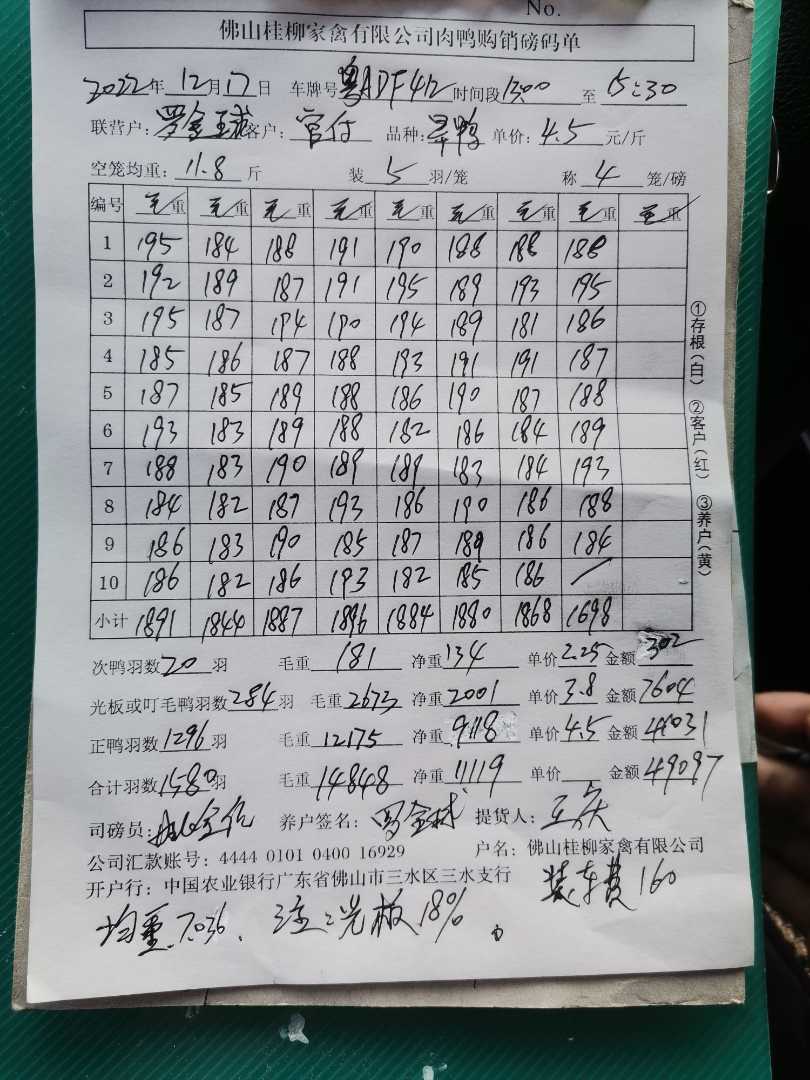 No.
佛山桂柳家禽有限公司肉鸭购销磅码单
2022年 12月17日 车牌号 粤ADF412 时间段 1300 至 15:30
联营户: 罗金球 客户: 官付 品种: 旱鸭 单价: 4.5 元/斤
空笼均重: 11.8 斤 装 5 羽/笼 称 4 笼/磅
编号 毛重 毛重 毛重 毛重 毛重 毛重 毛重 毛重 毛重
1 195 184 188 191 190 188 188 188
2 192 189 187 191 195 189 193 195
3 195 187 194 190 194 189 181 186
4 185 186 187 188 193 191 191 187
5 187 185 189 188 186 190 187 188
6 193 183 189 188 182 186 184 189
7 188 183 190 189 189 183 184 193
8 184 182 187 193 186 190 186 188
9 186 183 190 185 187 189 186 184
10 186 182 186 193 182 185 186 /
小计 1891 1844 1887 1896 1884 1880 1868 1698
次鸭羽数 20 羽 毛重 181 净重 134 单价 2.25 金额 302
光板或叮毛鸭羽数 284 羽 毛重 2673 净重 2001 单价 3.8 金额 7604
正鸭羽数 1296 羽 毛重 12175 净重 9118 单价 4.5 金额 41031
合计羽数 1580 羽 毛重 14848 净重 11119 单价 金额 49097
司磅员: 养户签名: 罗金球 提货人: 王庆
公司汇款账号: 4444 0101 0400 16929 户名: 佛山桂柳家禽有限公司
开户行: 中国农业银行广东省佛山市三水区三水支行 装车费 160
均重 7.036、 注:光板 18%。
①存根(白) ②客户(红) ③养户(黄)